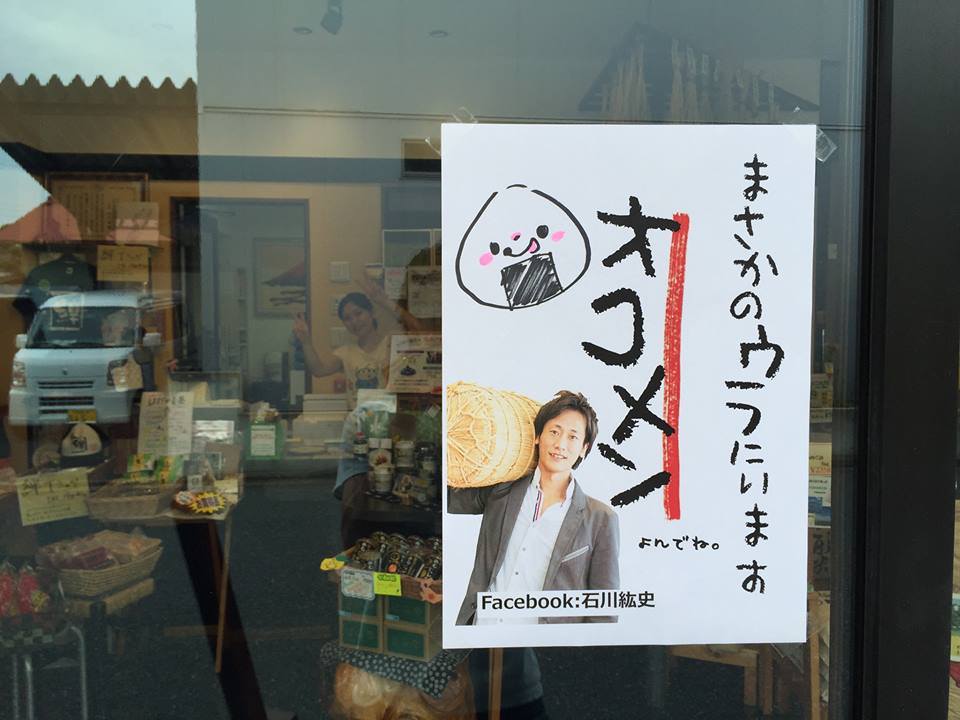 まさかのウラにいます
オコメン
よんでね。
Facebook:石川紘史